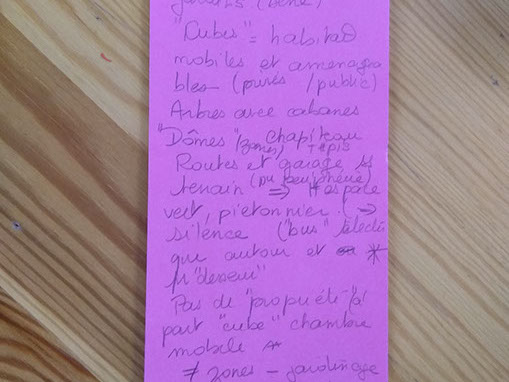 jardins (serre)
"Cubes" = habitat
mobiles et aménagea
bles - (privés / public)
Arbres avec cabanes
"Dômes", chapiteau
zones, tipis
Routes et garage ss
terrain (ou périphérie)
=> + espace
vert, piétonnier. (=>
silence ("bus" électri
que autour et *
pr "desservir"
Pas de "propriété" à
part "cube" chambre
mobile
≠ zones - jardinage